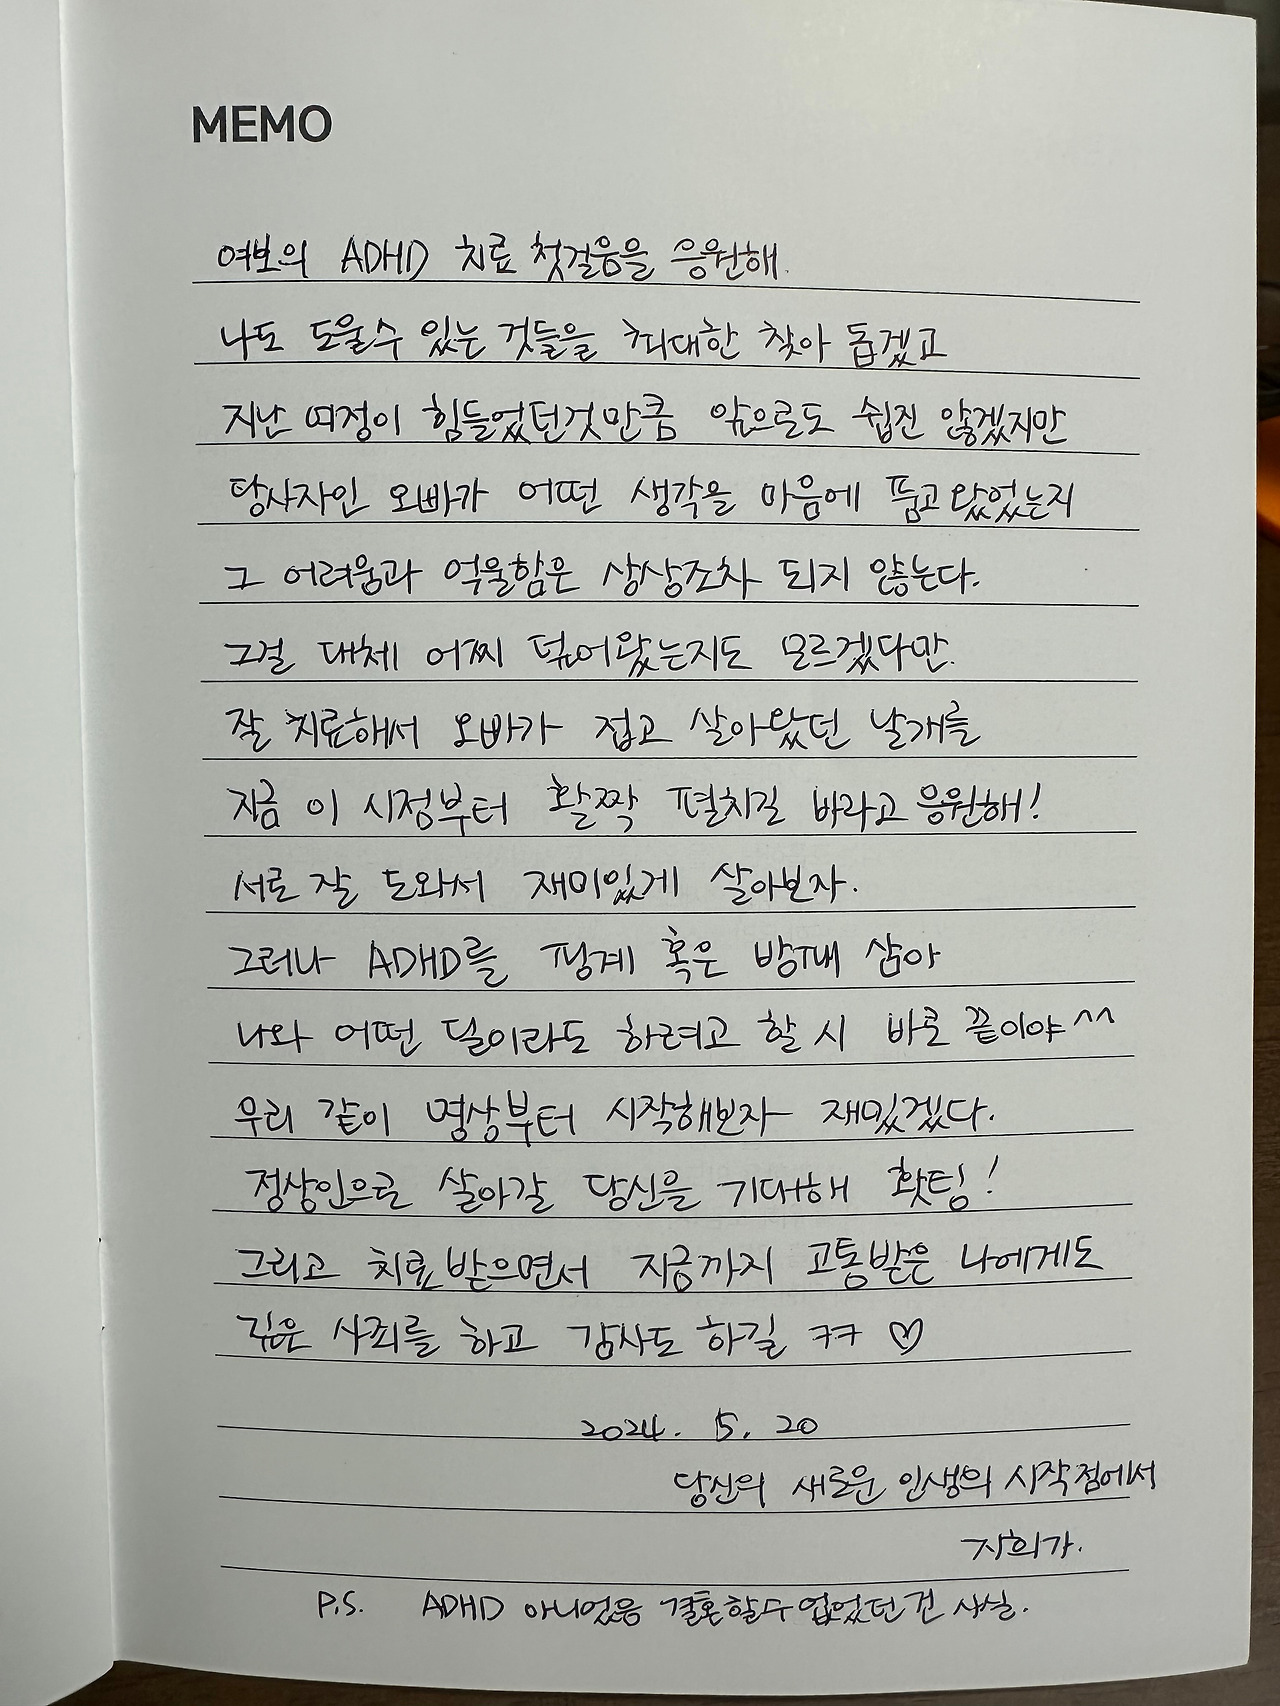 MEMO
여보의 ADHD 치료 첫걸음을 응원해.
나도 도울수 있는 것들을 최대한 찾아 돕겠고
지난 여정이 힘들었던것만큼 앞으로도 쉽진 않겠지만
당사자인 오빠가 어떤 생각을 마음에 품고 왔었는지
그 어려움과 억울함은 상상조차 되지 않는다.
그걸 대체 어찌 덮어왔는지도 모르겠다만.
잘 치료해서 오빠가 접고 살아왔던 날개를
지금 이 시점부터 활짝 펼치길 바라고 응원해!
서로 잘 도와서 재미있게 살아보자.
그러나 ADHD를 핑계 혹은 방패 삼아
나와 어떤 딜이라도 하려고 할 시 바로 끝이야^^
우리 같이 명상부터 시작해보자 재밌겠다.
정상인으로 살아갈 당신을 기대해 홧팅!
그리고 치료받으면서 지금까지 고통받은 나에게도
깊은 사죄를 하고 감사도 하길 ㅋㅋ ♡
2024. 5. 20
당신의 새로운 인생의 시작점에서
지희가.
P.S. ADHD 아니었음 결혼할수 없었던 건 사실.